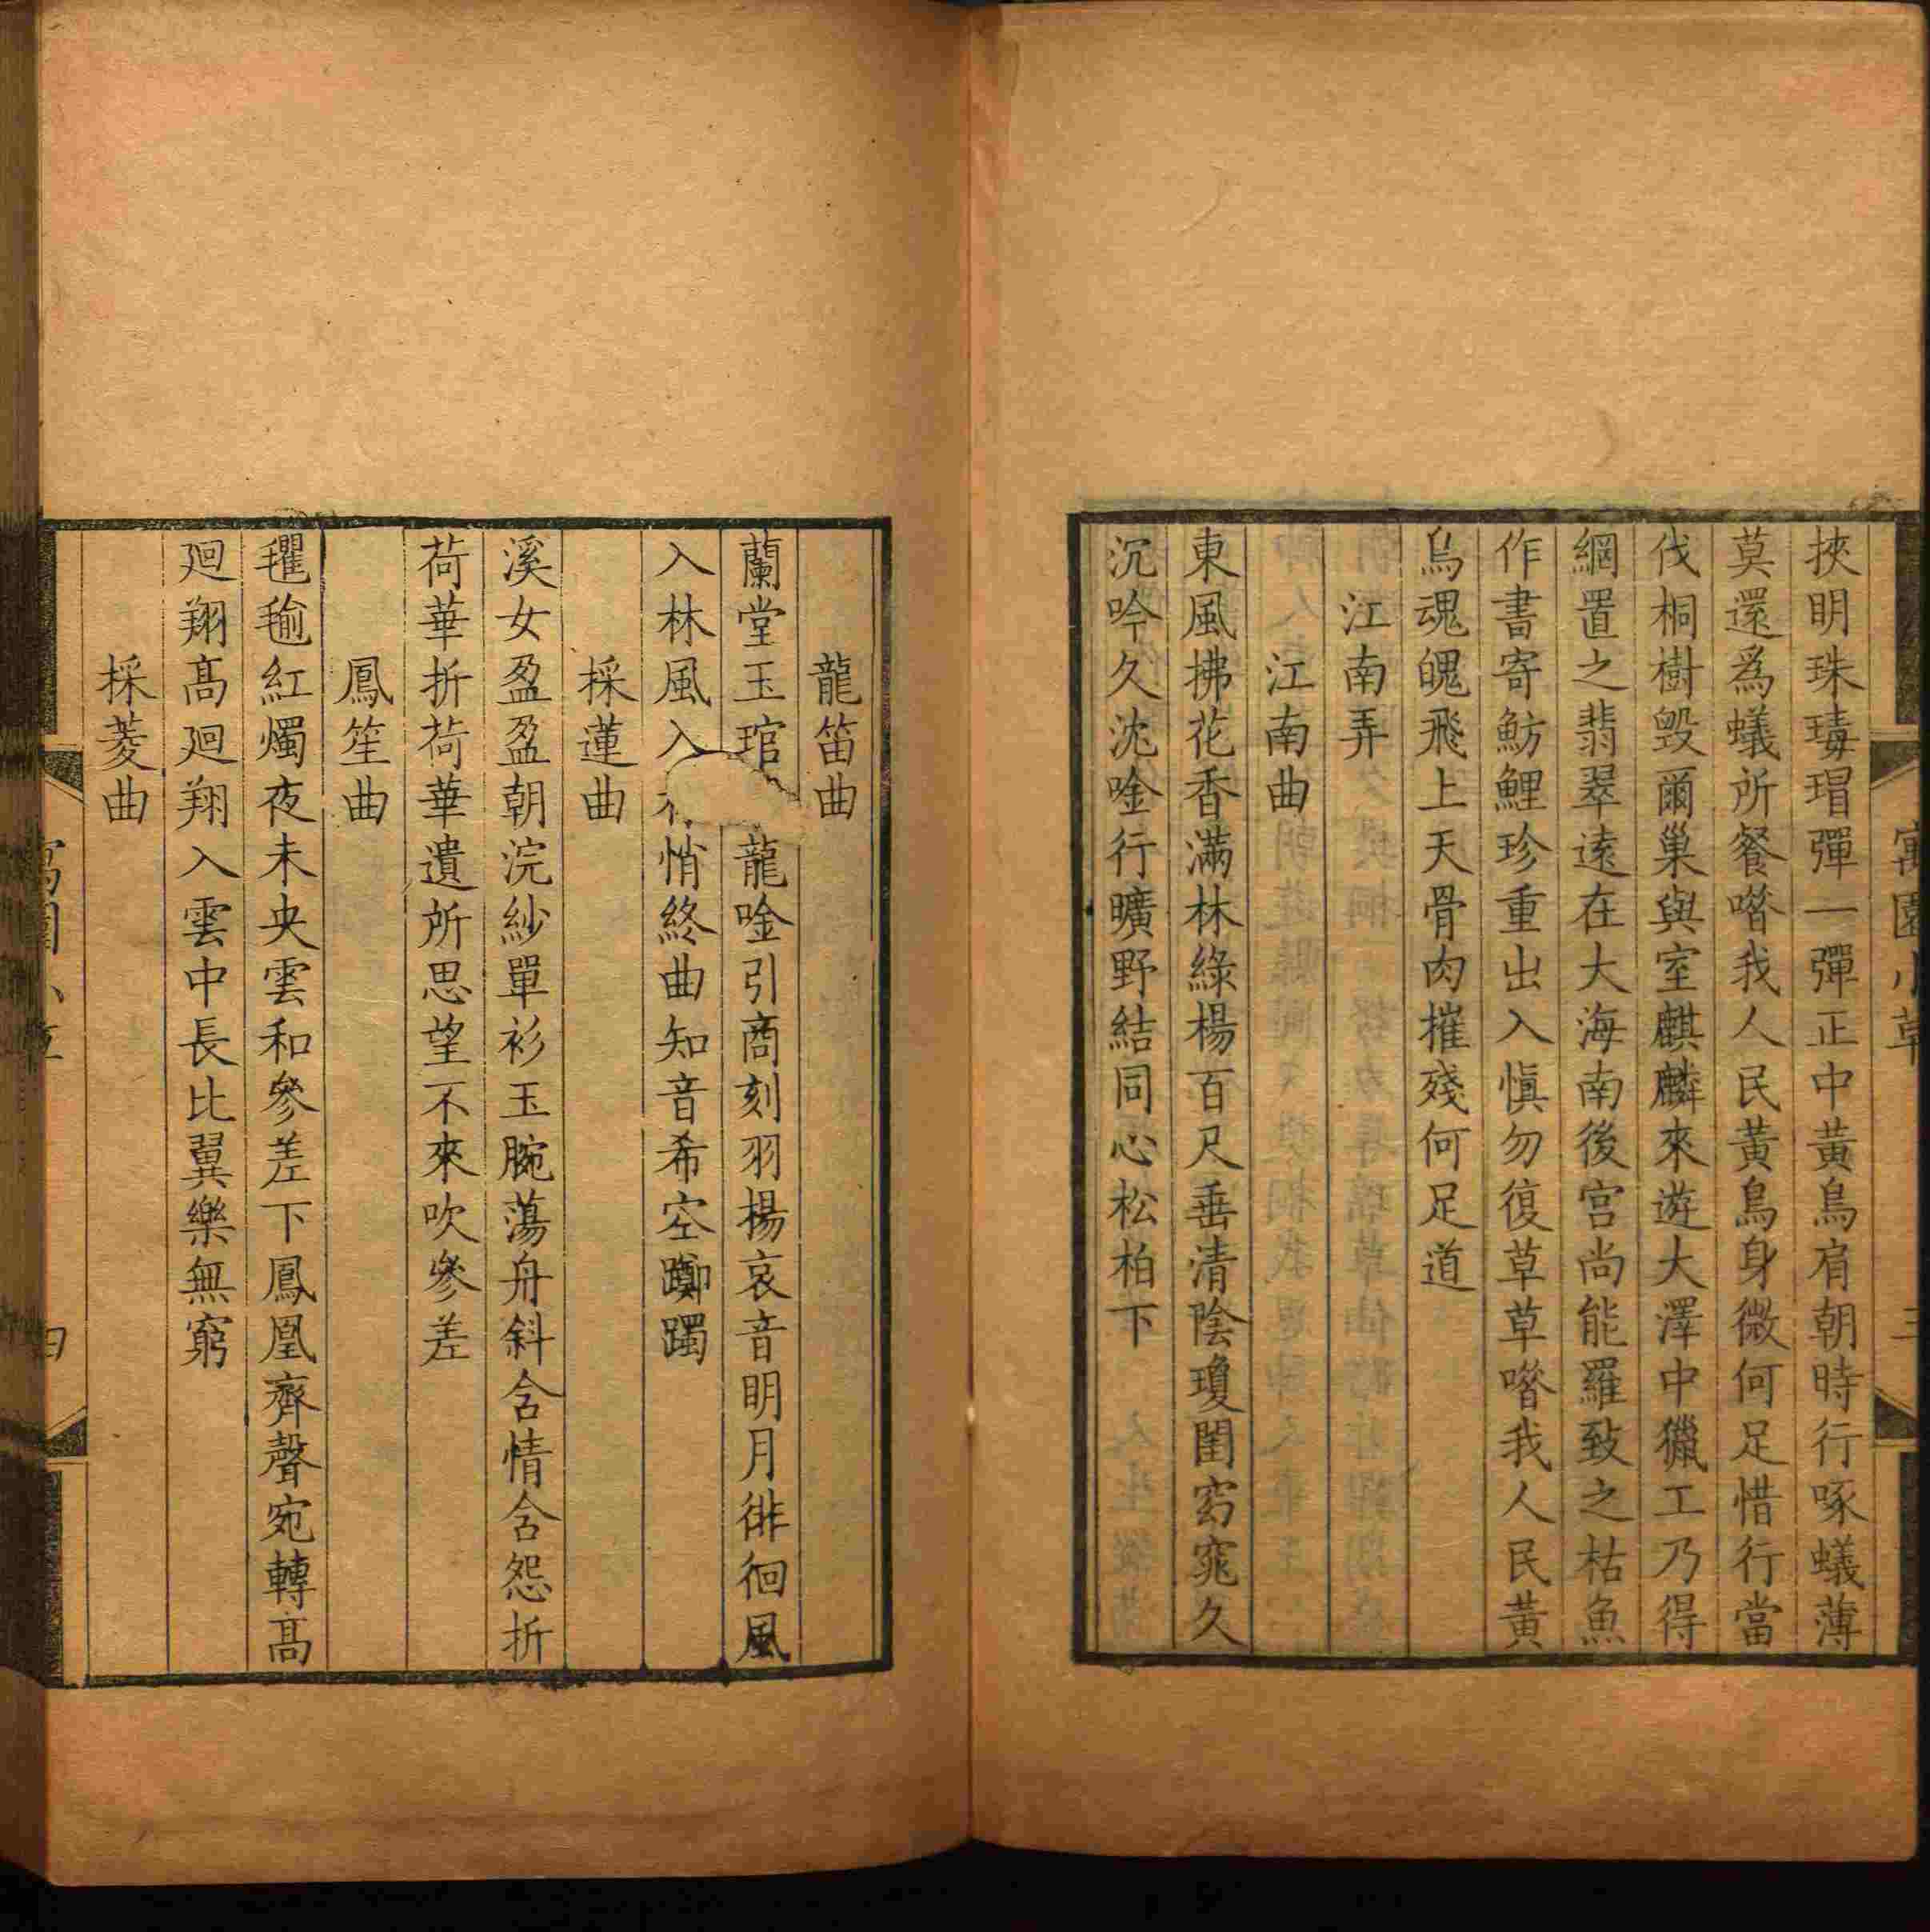 寓園小草
三
挾明珠瑇瑁彈一彈正中黃鳥肩朝時行啄蟻薄
莫還爲蟻所餐喒我人民黃鳥身微何足惜行當
伐桐樹毀爾巢與室麒麟來遊大澤中獵工乃得
網置之翡翠遠在大海南後宮尚能羅致之枯魚
作書寄魴鯉珍重出入愼勿復草草喒我人民黃
鳥魂魄飛上天骨肉摧殘何足道
江南弄
江南曲
東風拂花香滿林綠楊百尺垂清陰瓊閨窈窕久
沉吟久沈唫行曠野結同心松柏下
龍笛曲
蘭堂玉琯龍唫引商刻羽揚哀音明月徘徊風
入林風入悄終曲知音希空躑躅
採蓮曲
溪女盈盈朝浣紗單衫玉腕蕩舟斜含情含怨折
荷華折荷華遺所思望不來吹參差
鳳笙曲
氍毹紅燭夜未央雲和參差下鳳凰齊聲宛轉高
廻翔高廻翔入雲中長比翼樂無窮
採菱曲
四